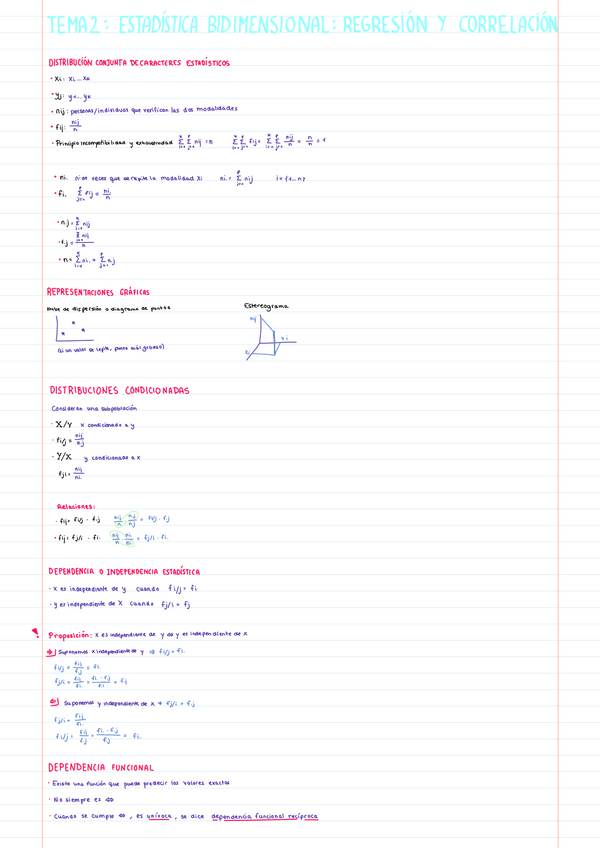 TEMA 2: ESTADÍSTICA BIDIMENSIONAL: REGRESIÓN Y CORRELACIÓN
DISTRIBUCIÓN CONJUNTA DE CARACTERES ESTADÍSTICOS
· Xi: X1...Xk
· yj: y1...
· nij: personas/individuos que verifican las dos modalidades
· fij: nij/n
· Principio incompatibilidad y exhaustividad Σ Σ nij = n Σ Σ fij = Σ Σ nij/n = n/n = 1
· ni. nº de veces que se repite la modalidad Xi ni. = Σ nij i = {1...n}
· fi. Σ fij = ni./n
· n.j = Σ nij
· f.j = Σ nij/n
· n = Σ ni. = Σ n.j
REPRESENTACIONES GRÁFICAS
Nube de dispersión o diagrama de puntos Estereograma
nij
yi
xi
(si un valor se repite, punto más grueso)
DISTRIBUCIONES CONDICIONADAS
Consideran una subpoblación
· X/Y x condicionado a y
· fi/j = nij/n.j
· Y/X y condicionado a x
fj/i = nij/ni.
Relaciones:
· fij = fi/j · f.j nij/n · n.j/n.j = fi/j · f.j
· fij = fj/i · fi. nij/n · ni./ni. = fj/i · fi.
DEPENDENCIA O INDEPENDENCIA ESTADÍSTICA
· x es independiente de y cuando fi/j = fi
· y es independiente de X cuando fj/i = fj
! Proposición: x es independiente de y ⇔ y es independiente de x
⇒) Suponemos x independiente de y ⇒ fi/j = fi.
fi/j = fij/f.j = fi.
fj/i = fij/fi. = fi. · f.j/fi. = f.j
⇐) Suponemos y independiente de x ⇒ fj/i = f.j
fj/i = fij/fi.
fi/j = fij/f.j = fi. · f.j/f.j = fi.
DEPENDENCIA FUNCIONAL
· Existe una función que puede predecir los valores exactos
· No siempre es ⇔
· Cuando se cumple ⇔, es unívoca, se dice dependencia funcional recíproca